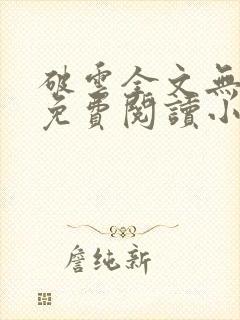 破雲全文無
免費閱讀小
詹纯新